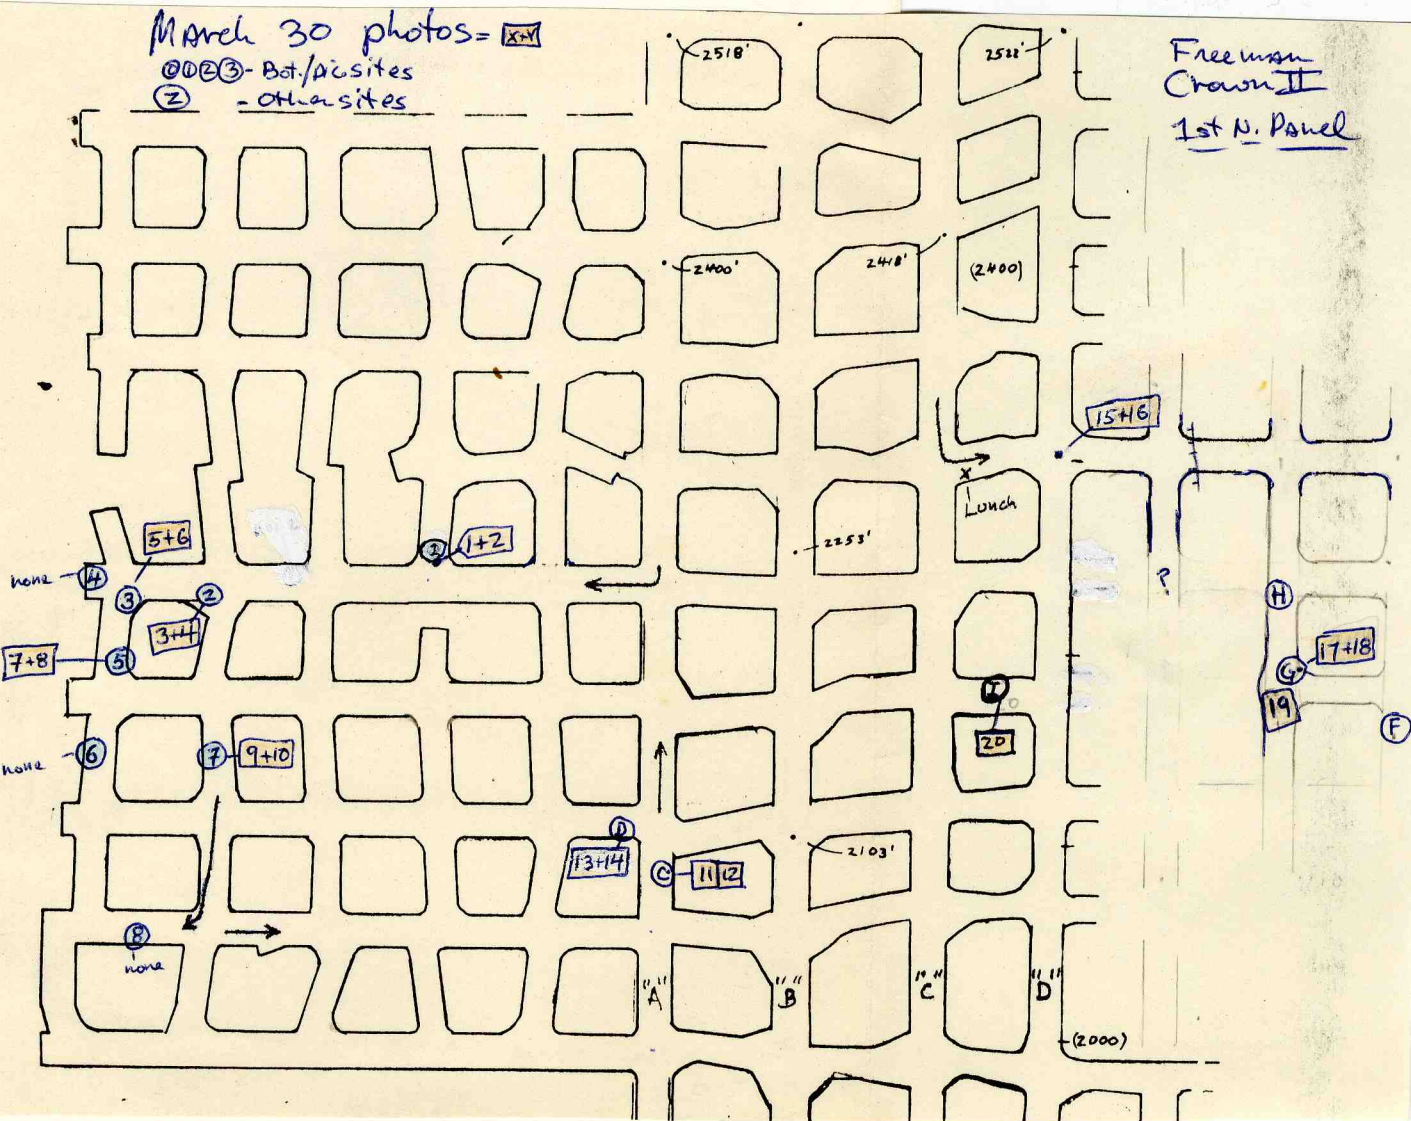 March 30 photos = X+Y
①①②③ - Bot./pic sites
Z - Other sites
Freeman
Crown II
1st N. Panel
2518'
2522'
2400'
2418'
(2400)
15+16
X
Lunch
5+6
1
1+2
2253'
none 4
3
2
3+4
?
H
7+8 5
17+18
G
I
19
20
F
none 6
7 9+10
D
13+14
C 11 12
2103'
8
none
"A" "B" "C" "D"
(2000)